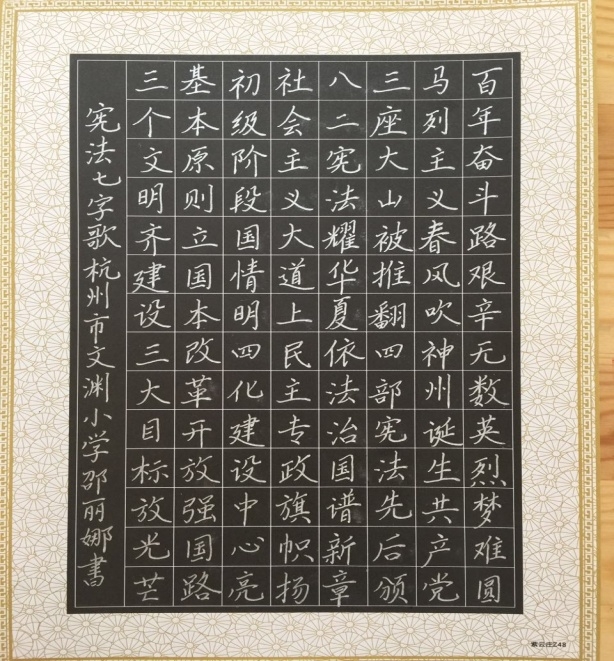 百年奋斗路艰辛无数英烈梦难圆
马列主义春风吹神州诞生共产党
三座大山被推翻四部宪法先后颁
八二宪法耀华夏依法治国谱新章
社会主义大道上民主专政旗帜扬
初级阶段国情明四化建设中心亮
基本原则立国本改革开放强国路
三个文明齐建设三大目标放光芒
宪法七字歌杭州市文渊小学邵丽娜书